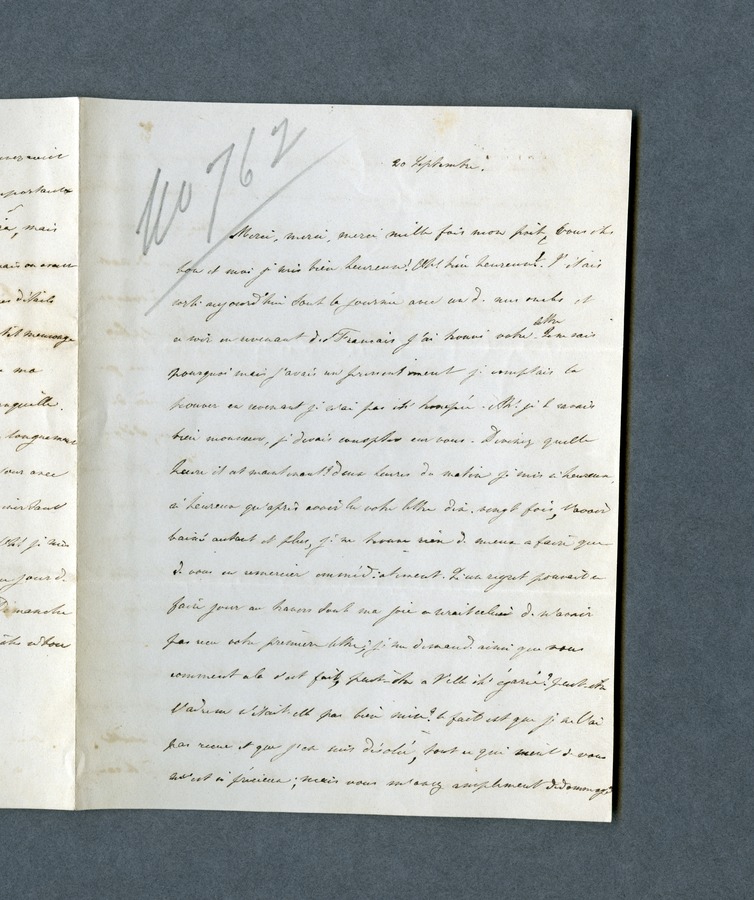 No 762
20 Septembre.
Merci, merci, merci mille fois mon petit, vous êtes
bon et moi je suis bien heureux! Oh! bien heureux!. J'étais
sorti aujourd'hui tout la journée avec un de mes oncles et
ce soir en revenant des Français j'ai trouvé votre lettre. Je ne sais
pourquoi mais j'avais un pressentiment je comptais la
trouver en revenant je n'ai pas été trompée. Ah! je le savais
bien monsieur, je devais compter sur vous. Devinez quelle
heure il est maintenant? deux heures du matin je suis si heureux,
si heureux qu'après avoir lu votre lettre dix, vingt fois, l'avoir
baisé autant et plus, je ne trouve rien de mieux a faire que
de vous en remercier immédiatement. Si un regret pouvait se
faire jour au travers tout ma joie ce serait celui de n'avoir
pas reçu votre première lettre; je me demande ainsi que vous
comment cela s'est fait, peut-être a t'elle été égarée? peut-être
l'adresse n'était elle pas bien mise? le fait est que je ne l'ai
pas reçue et que j'en suis désolé, tout ce qui vient de vous
m'est si précieux; mais vous m'avez amplement dédommagé
mais
détails
mensonge
ma
tranquille.
jour avec
je suis
jour de
Dimanche